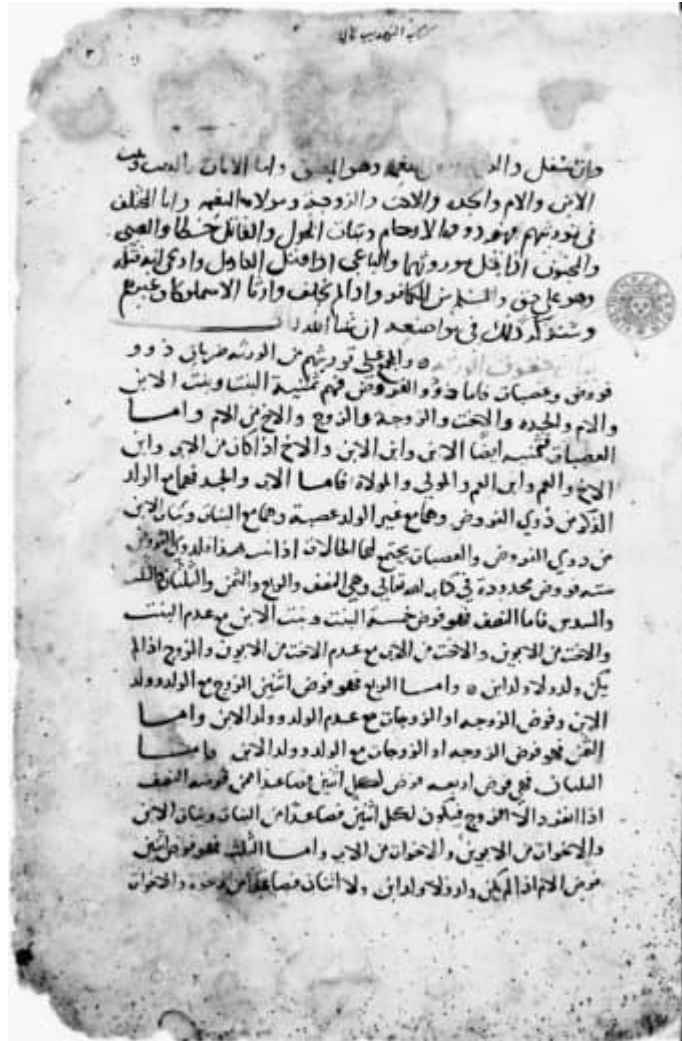 وان سفل وال وهو المعتق واما الاناث بالبنت وبنت
الابن والام والجده والاخت والزوجة ومولاه النعمه واما المختلف
في توريثهم فهو ذووا الارحام وبنات المحول والقاتل خطا والصبي
والمجنون اذا قتل موروثهما والباغي اذا قتل العادل وادعى انه قتله
وهو على حق والمسلم من الكافر واذا لم يخلف وارثا الا مملوكا وغير
وسنذكر ذلك في مواضعه ان شا الله تعالى
والمجمع على توريثهم من الورثه ضربان ذوو
فروض وعصبات فاما ذوو الفروض فهم ثمانية البنت وبنت الابن
والام والجده والاخت والزوجة والزوج والاخ من الام واما
العصبات فثمنيه ايضا الابن وابن الابن والاخ اذا كان من الاب وابن
الاخ والعم وابن العم والمولى والمولاة فاما الاب والجد فهما مع الولد
الذكر من ذوي الفروض وهما مع غير الولد عصبة وهما مع البنات وبنات الابن
من ذوي الفروض والعصبات يجتمع لهما الحالات اذا ثبت هذا فلذوي الفروض
سته فروض محدودة في كتاب الله تعالى وهي النصف والربع والثمن والثلثان والثلث
والسدس فاما النصف فهو فرض خمسة البنت وبنت الابن مع عدم البنت
والاخت من الابوين والاخت من الاب مع عدم الاخت من الابوين والزوج اذا لم
يكن ولد ولا ولد ابن ه واما الربع فهو فرض اثنين الزوج مع الولد وولد
الابن وفرض الزوجه او الزوجات مع عدم الولد وولد الابن واما
الثمن فهو فرض الزوجه او الزوجات مع الولد وولد الابن فاما
الثلثان فهي فرض اربعه فرض لكل اثنين فصاعدا ممن فرضه النصف
اذا انفرد الا الزوج فيكون لكل اثنين فصاعدا من البنات وبنات الابن
والاخوات من الابوين والاخوات من الاب واما الثلث فهو فرض اثنين
فرض الام اذا لم يكن ولد ولا ولد ابن ولا اثنان فصاعدا من الاخوة والاخوات